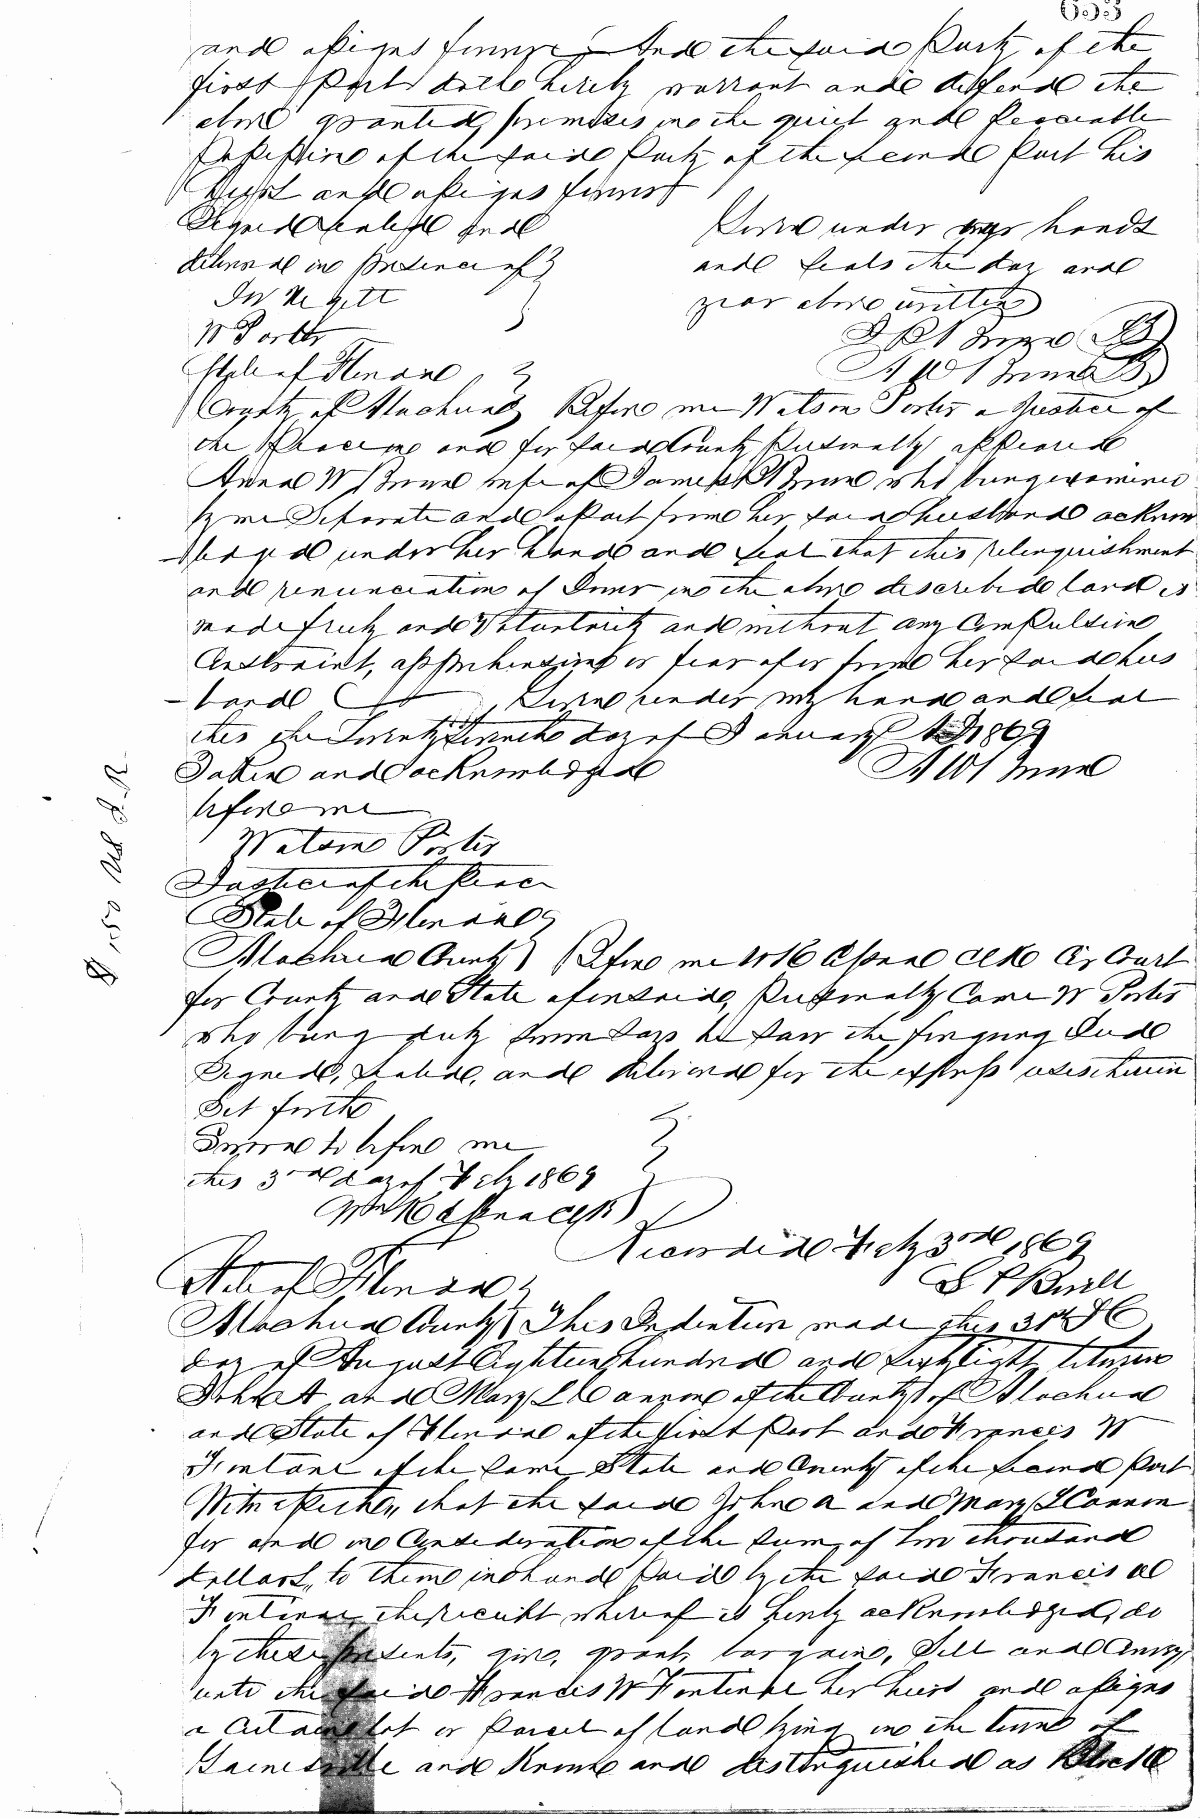 653
and assigns forever And the said Party of the
first Part doth hereby warrant and defend the
above granted premises in the quiet and Peaceable
Possession of the said Party of the second Part his
Heirs and assigns forever
Signed sealed and
delivered in presence of
W Porter
Given under our hands
and seals the day and
year above written
J P Brown
A W Brown
State of Florida
County of Alachua Before me Watson Porter a Justice of
the Peace in and for said County Personally appeared
Anna W Brown wife of James P Brown who being examined
by me Separate and apart from her said husband acknow
ledged under her hand and seal that this relinquishment
and renunciation of Dower in the above described land is
made freely and Voluntarily and without any Compulsion
Constraint, apprehension or fear of or from her said hus
band Given under my hand and seal
this the Twenty seventh day of January AD 1869
A W Brown
Taken and acknowledged
before me
Watson Porter
Justice of the Peace
$1.50 US I.R.
State of Florida
Alachua County Before me Clk Cir Court
for County and State aforesaid, Personally Came W Porter
who being duly sworn says he saw the foregoing Deed
Signed, sealed, and delivered for the express uses therein
Set forth
Sworn to before me
this 3rd day of Feby 1869
Clk
Recorded Feby 3rd 1869
State of Florida
Alachua County This Indenture made this 31st
day of August Eighteen hundred and sixty eight between
John A and Mary L Cannon of the County of Alachua
and State of Florida of the first Part and Frances W
Fontane of the same State and County of the second Part
Witnesseth, that the said John A and Mary L Cannon
for and in Consideration of the sum of two thousand
dollars, to them in hand Paid by the said Francis W
Fontane the receipt whereof is hereby acknowledged, do
by these presents, give, grant, bargain, Sell and Convey
unto the said Francis W Fontane her heirs and assigns
a Certain lot or Parcel of land lying in the town of
Gainesville and Known and distinguished as Block